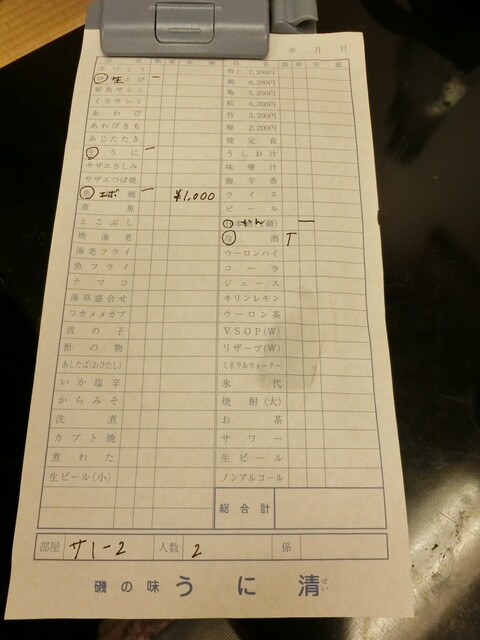 年 月 日
品 名 数 単 金 額
生づくり
生えび 一
鮮魚サシミ
イカサシミ
あわび
あわびきも
あじたたき
生うに 一
サザエさしみ
サザエつぼ焼
魚 エボ焼 一 ¥1,000
煮魚
とこぶし
焼海老
海老フライ
魚フライ
ナマコ
海草盛合せ
ワカメメカブ
波の子
酢の物
あしたば(おひたし)
いか塩辛
からみそ
洗煮
カブト焼
煮わた
生ビール(小)
品 名 数 単 金 額
特上 7,200円
鶴 6,200円
亀 5,200円
松 4,200円
竹 3,200円
梅 2,200円
焼定食
うしお汁
味噌汁
御辛香
ライス
ビール
日本酒(1級) かん 一
冷酒 T
ウーロンハイ
コーラ
ジュース
キリンレモン
ウーロン茶
VSOP(W)
リザーブ(W)
ミネラルウォーター
氷代
焼酎(大)
お茶
サワー
生ビール
ノンアルコール
総合計
部屋 サ1-2 人数 2 係
磯の味 うに清 せい